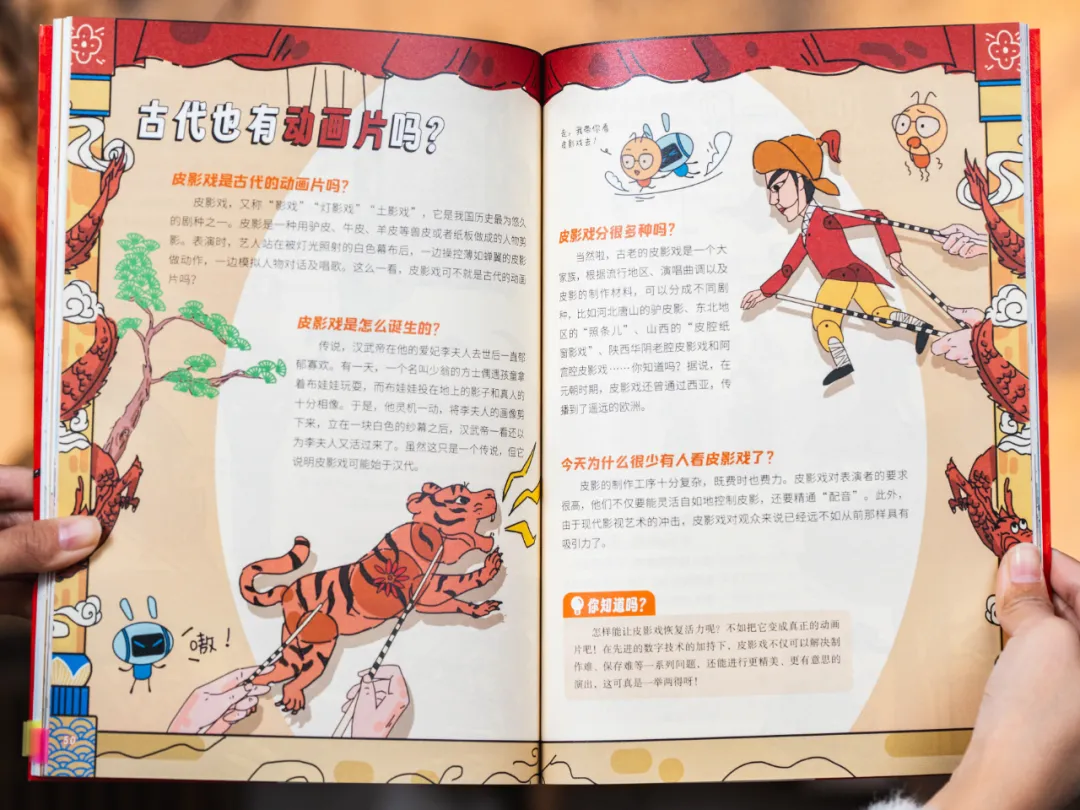 古代也有动画片吗?
皮影戏是古代的动画片吗?
皮影戏，又称“影戏”“灯影戏”“土影戏”，它是我国历史最为悠久
的剧种之一。皮影是一种用驴皮、牛皮、羊皮等兽皮或者纸板做成的人物剪
影。表演时，艺人站在被灯光照射的白色幕布后，一边操控薄如蝉翼的皮影
做动作，一边模拟人物对话及唱歌。这么一看，皮影戏可不就是古代的动画
片吗?
皮影戏是怎么诞生的?
传说，汉武帝在他的爱妃李夫人去世后一直郁
郁寡欢。有一天，一个名叫少翁的方士偶遇孩童拿
着布娃娃玩耍，而布娃娃投在地上的影子和真人的
十分相像。于是，他灵机一动，将李夫人的画像剪
下来，立在一块白色的纱幕之后，汉武帝一看还以
为李夫人又活过来了。虽然这只是一个传说，但它
说明皮影戏可能始于汉代。
嗷!
50
走，我带你看
皮影戏去!
皮影戏分很多种吗?
当然啦，古老的皮影戏是一个大
家族，根据流行地区、演唱曲调以及
皮影的制作材料，可以分成不同剧
种，比如河北唐山的驴皮影、东北地
区的“照条儿”、山西的“皮腔纸
窗影戏”、陕西华阴老腔皮影戏和阿
宫腔皮影戏……你知道吗?据说，在
元朝时期，皮影戏还曾通过西亚，传
播到了遥远的欧洲。
今天为什么很少有人看皮影戏了?
皮影的制作工序十分复杂，既费时也费力。皮影戏对表演者的要求
很高，他们不仅要能灵活自如地控制皮影，还要精通“配音”。此外，
由于现代影视艺术的冲击，皮影戏对观众来说已经远不如从前那样具有
吸引力了。
你知道吗?
怎样能让皮影戏恢复活力呢?不如把它变成真正的动画
片吧!在先进的数字技术的加持下，皮影戏不仅可以解决制
作难、保存难等一系列问题，还能进行更精美、更有意思的
演出，这可真是一举两得呀!